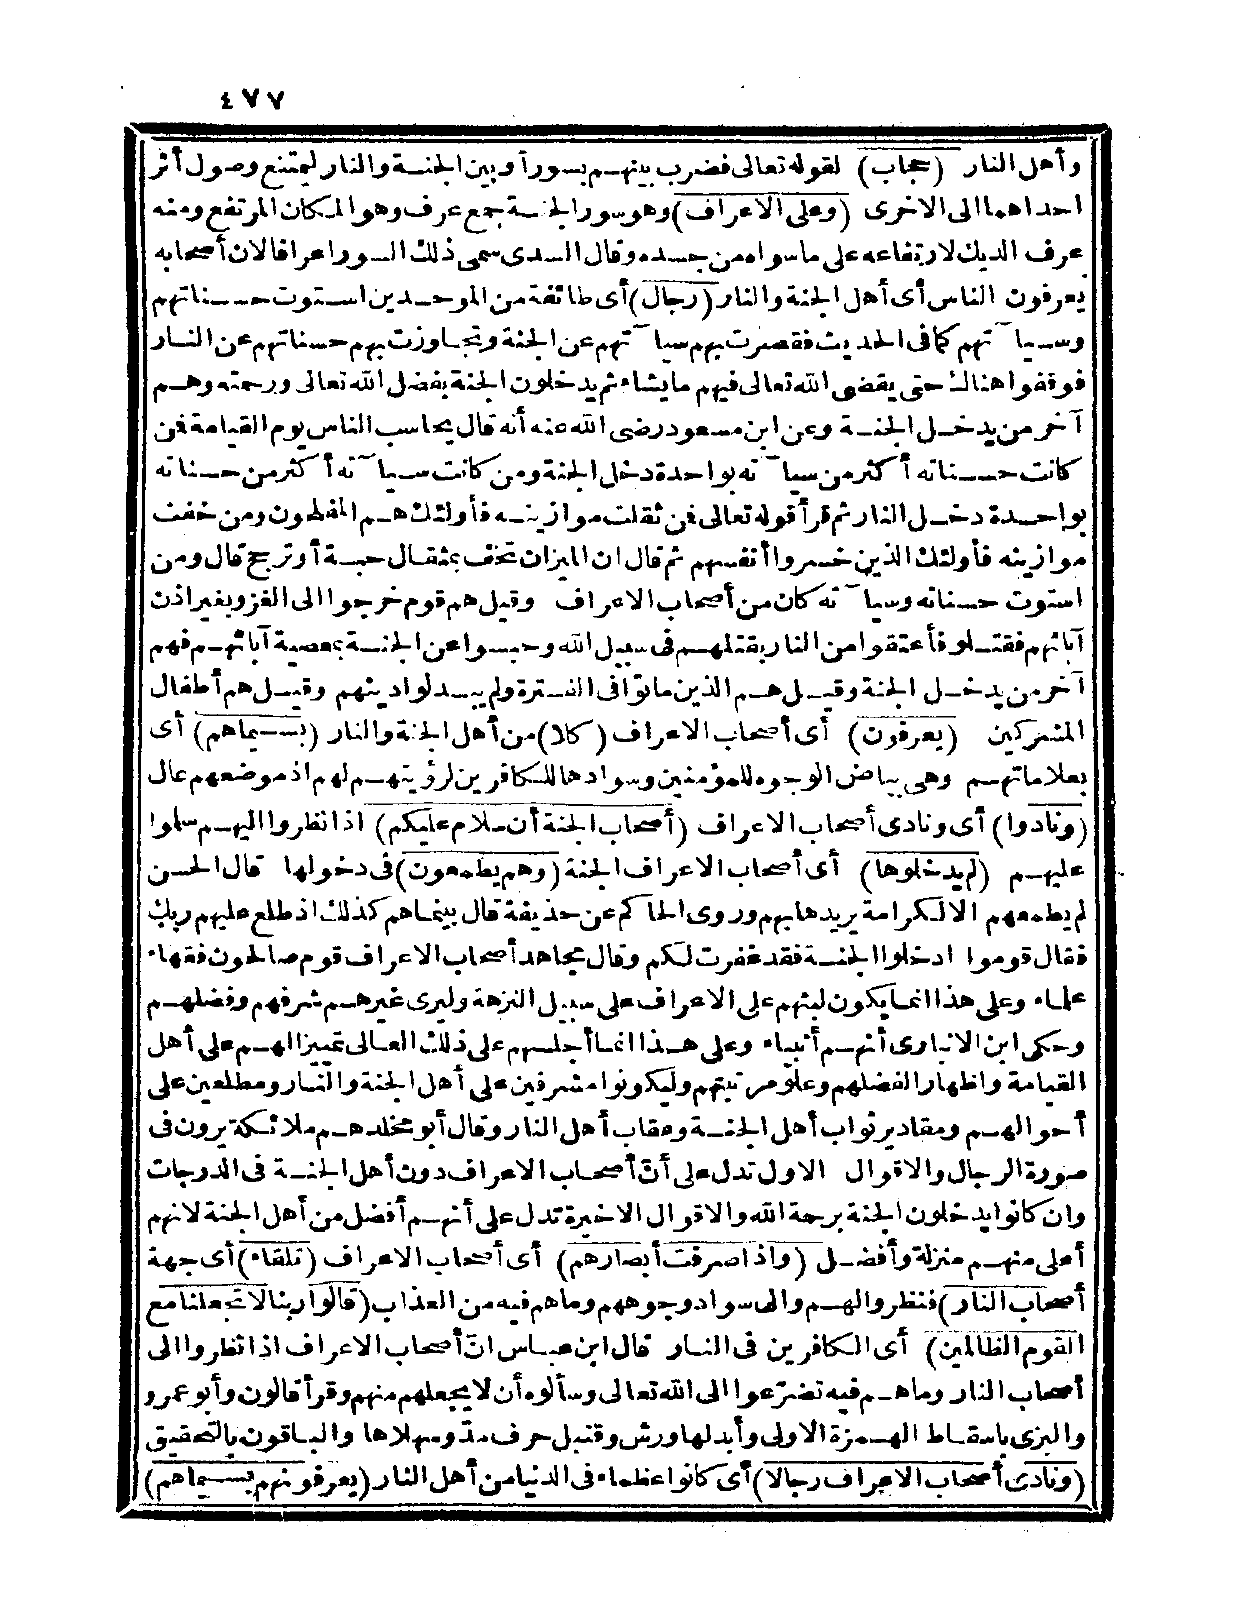 ٤٧٧
وأهل النار (حجاب) لقوله تعالى فضرب بينهم بسور أو بين الجنة والنار ليمتنع وصول أثر
احداهما الى الاخرى (وعلى الاعراف) وهو سور الجنة جمع عرف وهو المكان المرتفع ومنه
عرف الديك لارتفاعه على ما سواه من جسده وقال السدى سمى ذلك السور اعرافا لان أصحابه
يعرفون الناس أى أهل الجنة والنار (رجال) أى طائفة من الموحدين استوت حسناتهم
وسيآتهم كما فى الحديث فقصرت بهم سيآتهم عن الجنة وتجاوزت بهم حسناتهم عن النار
فوقفوا هنالك حتى يقضى الله تعالى فيهم ما يشاء ثم يدخلون الجنة بفضل الله تعالى ورحمته وهم
آخر من يدخل الجنة وعن ابن مسعود رضى الله عنه أنه قال يحاسب الناس يوم القيامة فمن
كانت حسناته أكثر من سيآته بواحدة دخل الجنة ومن كانت سيآته أكثر من حسناته
بواحدة دخل النار ثم قرأ قوله تعالى فمن ثقلت موازينه فأولئك هم المفلحون ومن خفت
موازينه فأولئك الذين خسروا أنفسهم ثم قال ان الميزان تخف بمثقال حبة أو ترجح قال ومن
استوت حسناته وسيآته كان من أصحاب الاعراف وقيل هم قوم خرجوا الى الغزو بغير اذن
آبائهم فقتلوا فأعتقوا من النار بقتلهم فى سبيل الله وحبسوا عن الجنة بمعصية آبائهم فهم
آخر من يدخل الجنة وقيل هم الذين ماتوا فى الفترة ولم يبدلوا دينهم وقيل هم أطفال
المشركين (يعرفون) أى أصحاب الاعراف (كلا) من أهل الجنة والنار (بسيماهم) أى
بعلاماتهم وهى بياض الوجوه للمؤمنين وسوادها للكافرين لرؤيتهم لهم اذ موضعهم عال
(ونادوا) أى ونادى أصحاب الاعراف (أصحاب الجنة أن سلام عليكم) اذا نظروا اليهم سلموا
عليهم (لم يدخلوها) أى أصحاب الاعراف الجنة (وهم يطمعون) فى دخولها قال الحسن
لم يطمعهم الا لكرامة يريدها بهم وروى الحاكم عن حذيفة قال بينما هم كذلك اذ طلع عليهم ربك
فقال قوموا ادخلوا الجنة فقد غفرت لكم وقال مجاهد أصحاب الاعراف قوم صالحون فقهاء
علماء وعلى هذا انما يكون لبثهم على الاعراف على سبيل النزهة وليرى غيرهم شرفهم وفضلهم
وحكى ابن الانبارى أنهم أنبياء وعلى هذا انما أجلسهم على ذلك العالى تمييزا لهم على أهل
القيامة واظهارا لفضلهم وعلو مرتبتهم وليكونوا مشرفين على أهل الجنة والنار ومطلعين على
أحوالهم ومقادير ثواب أهل الجنة وعقاب أهل النار وقال أبو مخلد هم ملائكة يرون فى
صورة الرجال والاقوال الاول تدل على أن أصحاب الاعراف دون أهل الجنة فى الدرجات
وان كانوا يدخلون الجنة برحمة الله والاقوال الاخيرة تدل على أنهم أفضل من أهل الجنة لانهم
أعلى منهم منزلة وأفضل (واذا صرفت أبصارهم) أى أصحاب الاعراف (تلقاء) أى جهة
أصحاب النار) فنظروا لهم والى سواد وجوههم وما هم فيه من العذاب (قالوا ربنا لا تجعلنا مع
القوم الظالمين) أى الكافرين فى النار قال ابن عباس انّ أصحاب الاعراف اذا نظروا الى
أصحاب النار وما هم فيه تضرّعوا الى الله تعالى وسألوه أن لا يجعلهم منهم وقرأ قالون وأبو عمرو
والبزى باسقاط الهمزة الاولى وأبدلها ورش وقنبل حرف مدّ وسهلاها والباقون بالتحقيق
(ونادى أصحاب الاعراف رجالا) أى كانوا عظماء فى الدنيا من أهل النار (يعرفونهم بسيماهم)